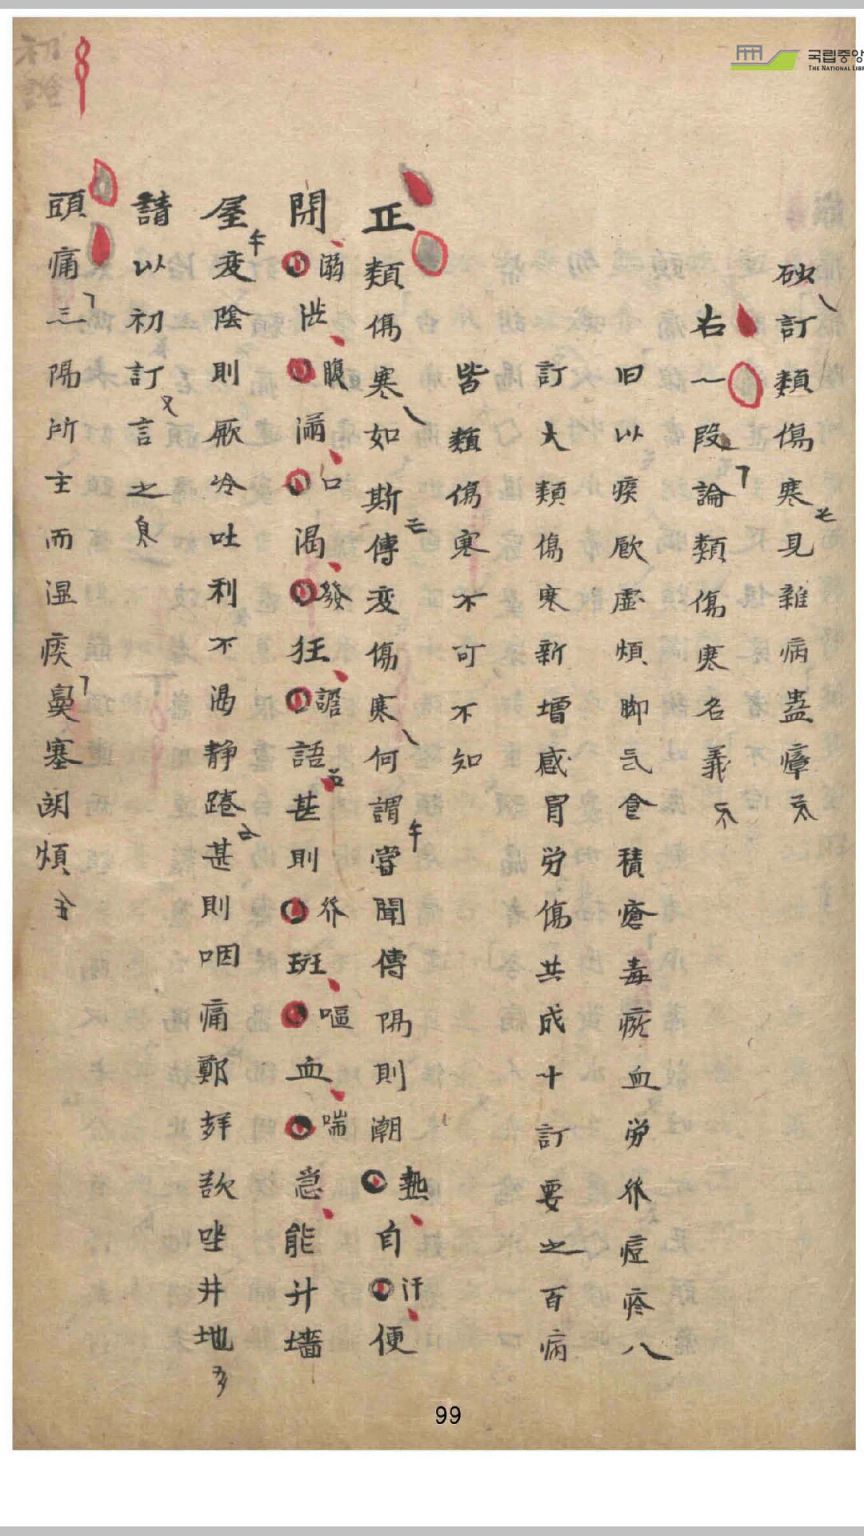 訂類傷寒見雜病蠱瘴
右一段論類傷寒名義
旧以痰厥虛煩脚氣食積瘡毒瘀血勞發痘疹八
訂大類傷寒新增感冒勞傷共成十訂要之百病
皆類傷寒不可不知
正類傷寒如斯傳变傷寒何謂嘗聞傳陽則潮熱自汗便
閉溺泄腹滿口渴發狂譫語甚則發斑嘔血喘急能升墻
屋变陰則厥冷吐利不渴静踡甚則咽痛鄭欬井地
請以初訂言之
頭痛三陽所主而湿痰鼻塞煩
99
국립중앙
THE NATIONAL